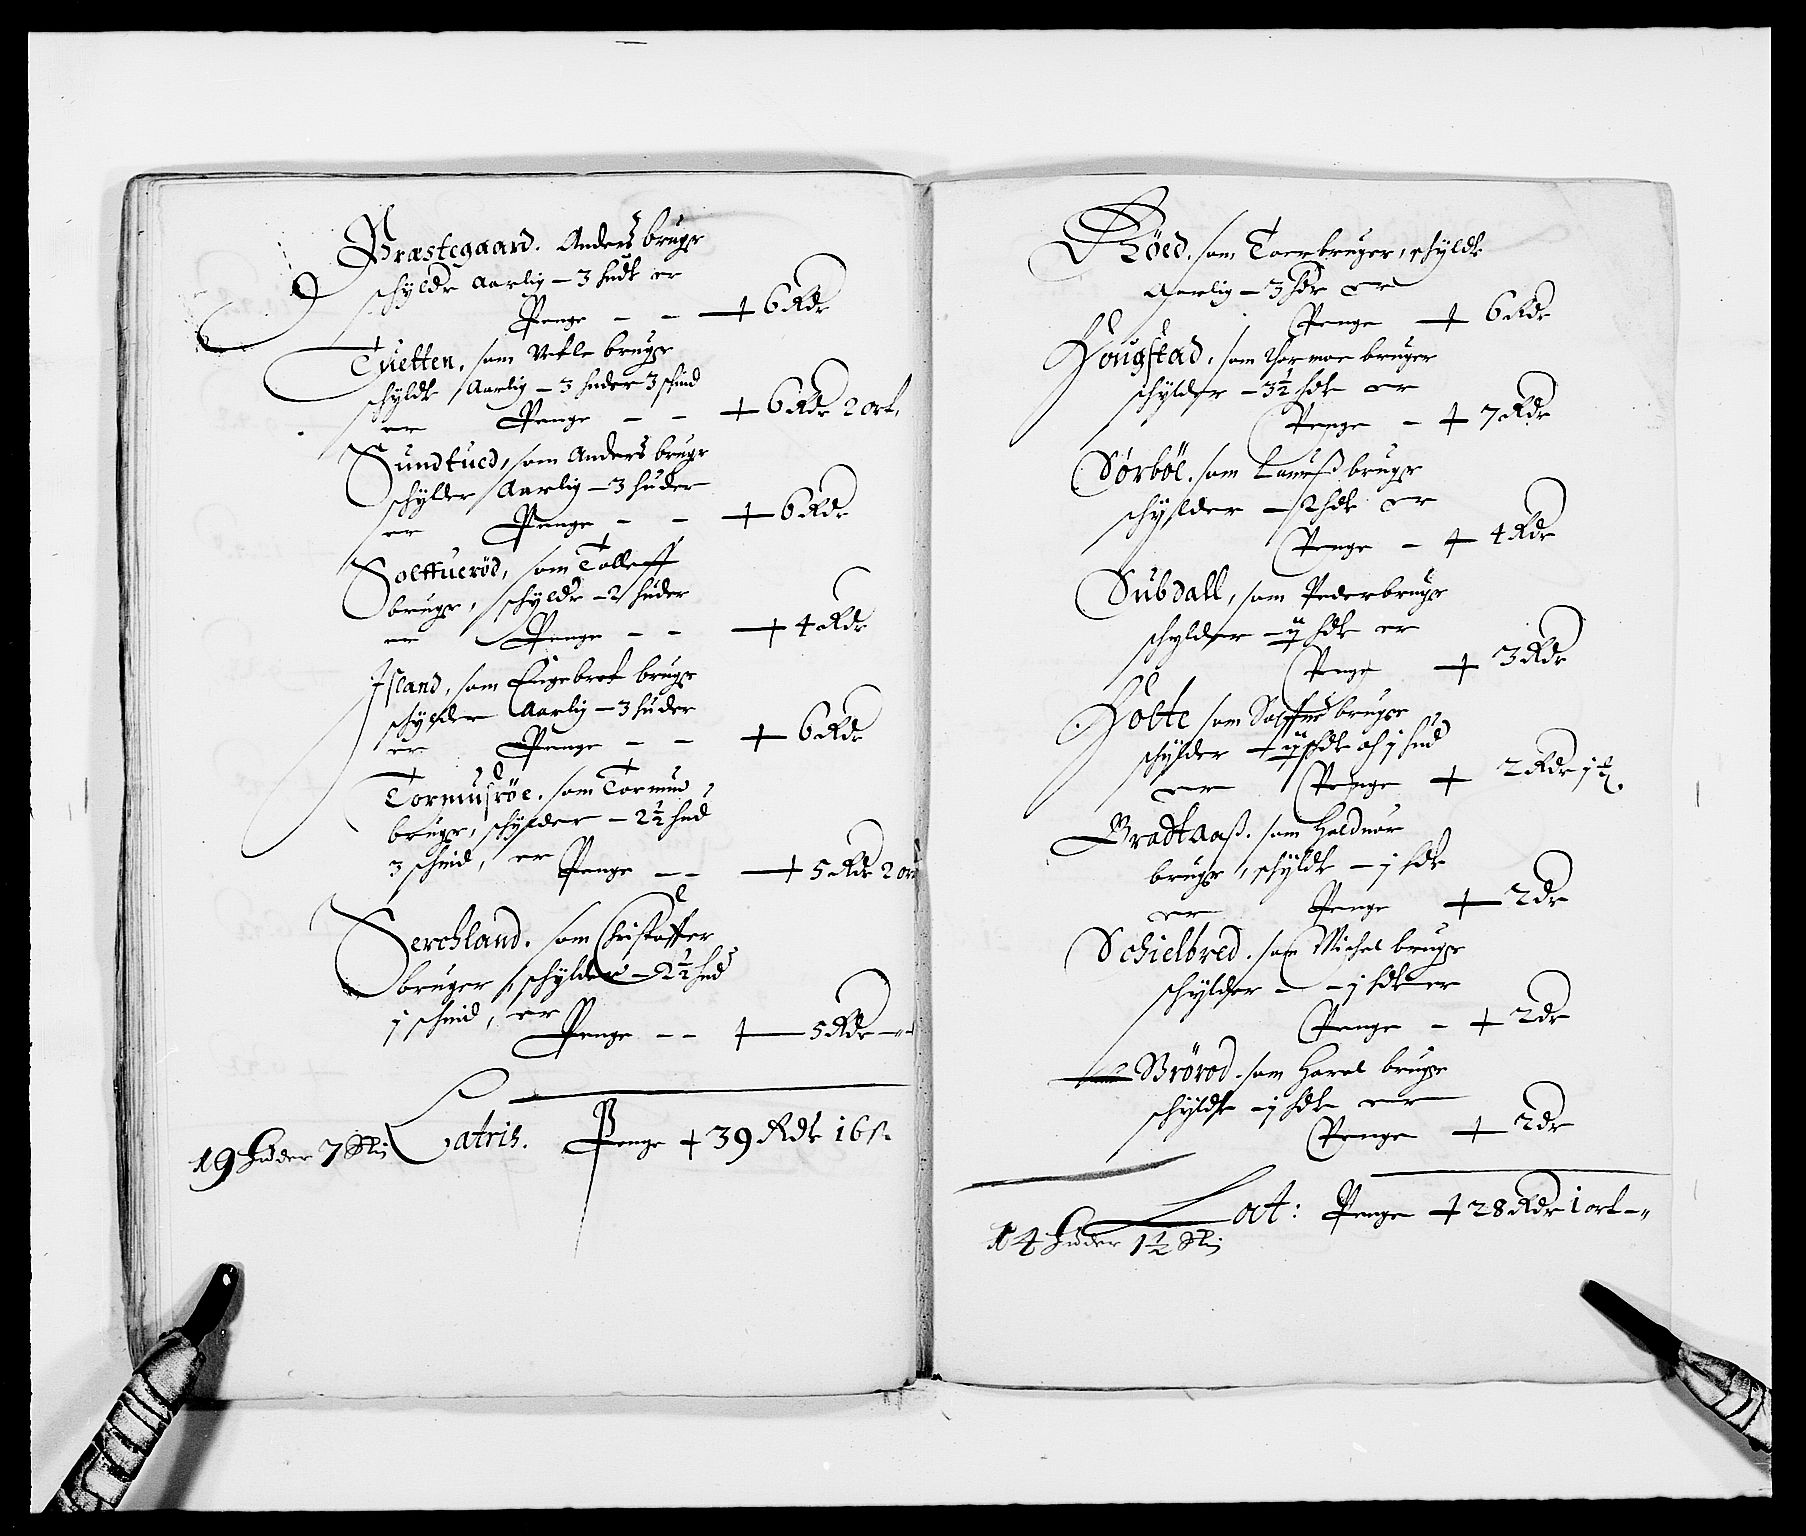 Præstegaard. Anders brugr
schyldr Aarlig – 3 hudr er
Penge – – + 6 Rdr
Tuetten, som Vetle brugr
schyldr Aarlig – 3 huder 3 skind
er Penge – – + 6 Rdr 2 ort
Sundtued, som Anders brugr
schylder Aarlig – 3 huder
er Penge – – + 6 Rdr
Solffueröd, som Tolleff
brugr, schyldr – 2 huder
er Penge – – + 4 Rdr
Island, som Engebret brugr
schylder Aarlig – 3 huder
er Penge – – + 6 Rdr
Tormusröe. som Tormud
brugr, schylder – 2½ hud
3 schind, er Penge – – + 5 Rdr 2 ort
Serchland. som Christoffer
bruger, schylder – 2½ hud
j schind, er
Penge – – + 5 Rdr –
Latris. Penge + 39 Rdr 16 s.
19 Huder 7 Ski
Röed. som Toer bruger, schyldr
Aarlig – 3 hdr er
Penge + 6 Rdr
Hougstad, som Thormoe bruger
schylder – 3½ hdr er
Penge – + 7 Rdr
Sörböe. som Lauriß brugr
schylder – 2 hdr er
Penge – + 4 Rdr
Subdall, som Peder brugr
schylder – ÿ hdr er
Penge + 3 Rdr
Holte som brugr
schylder – ÿ hdr oc j hud
er Penge + 2 Rdr j ½
Bradtaaß. som Halduor
brugr, schyldr – j hdr
er Penge + 2 dr
Schielbred. som Michel brugr
schylder – – j hdr er
Penge – + 2 dr
Brörod. som Harel brugr
schyldr – j hdr er
Penge + 2 dr
Lat: Penge + 28 Rdr 1 ort –
14 Huder 1½ Ski